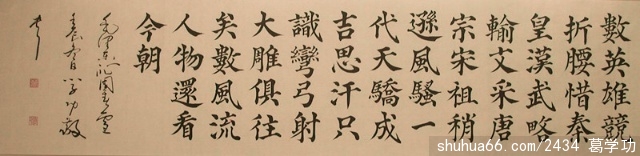 數英雄競
折腰惜秦
皇漢武略
輸文采唐
宗宋祖稍
遜風騷一
代天驕成
吉思汗只
識彎弓射
大雕俱往
矣數風流
人物還看
今朝
毛澤东沁園春雪
学功敬
shuhua66.com/2434 葛学功